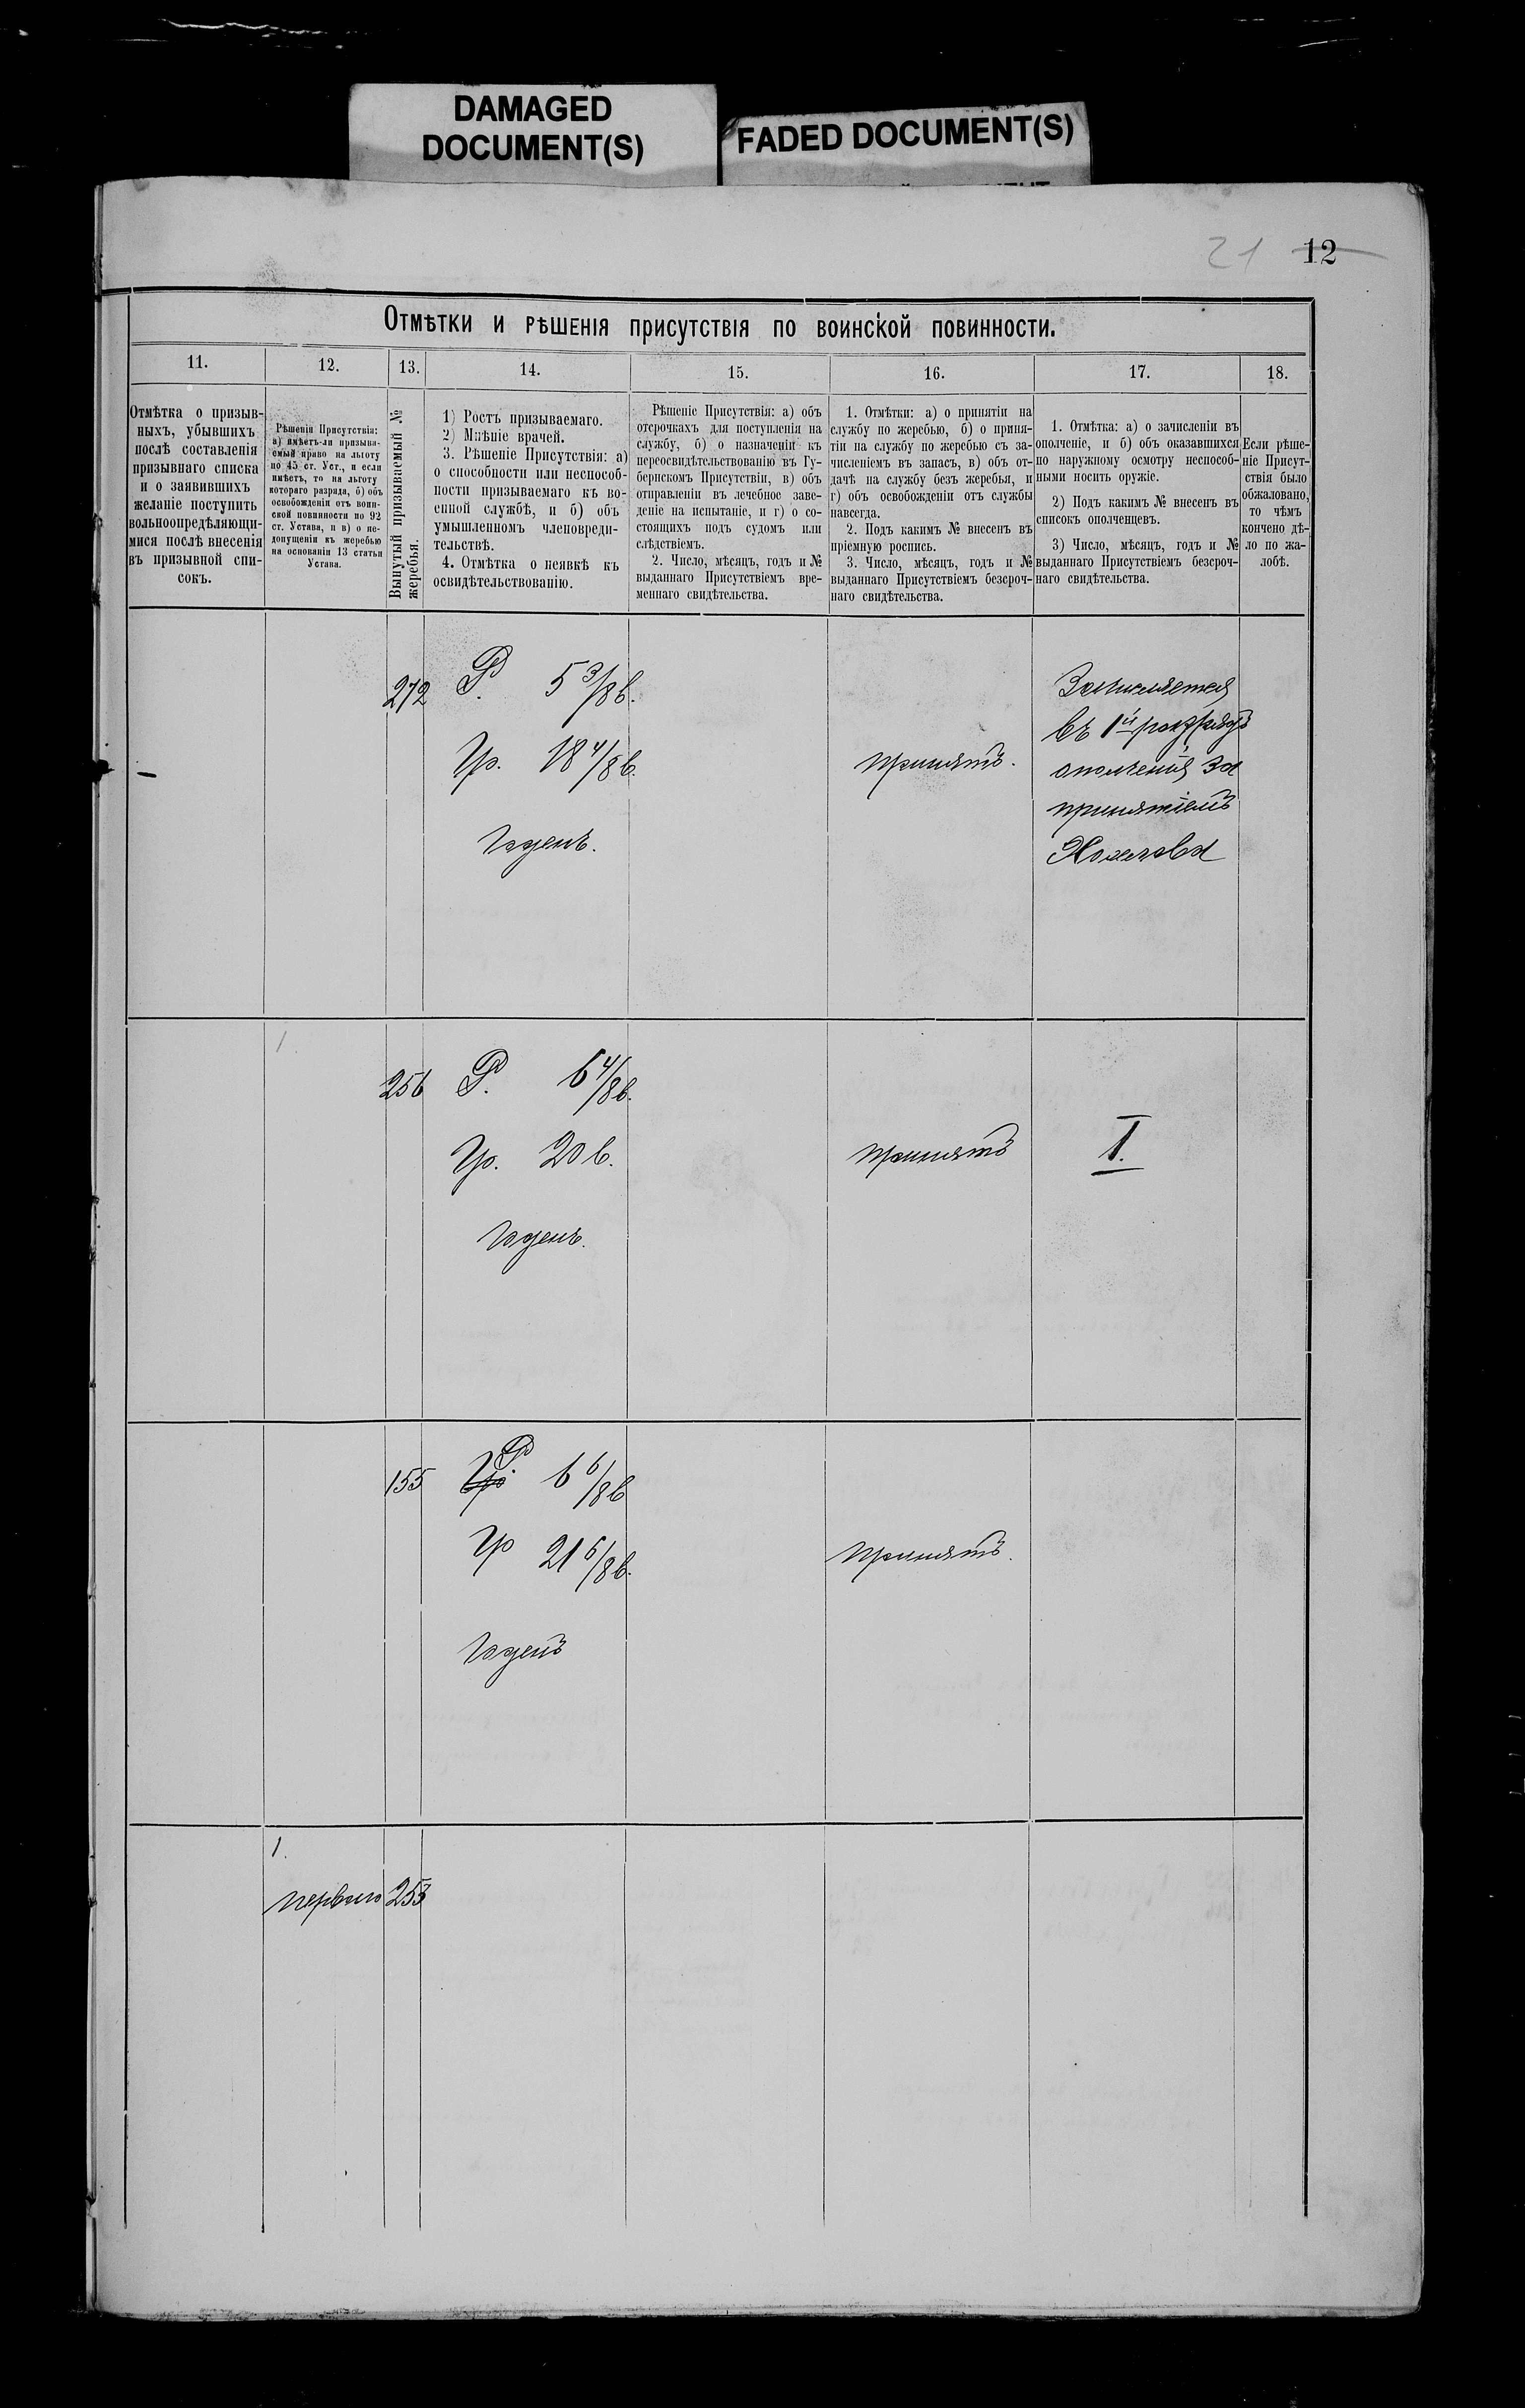 DAMAGED
DOCUMENT(S)
FADED DOCUMENT(S)
21 12
Отмѣтки и рѣшенія присутствія по воинской повинности.
11. 12. 13. 14. 15. 16. 17. 18.
Отмѣтка о призыв-
ныхъ, убывшихъ
послѣ составленія
призывнаго списка
и о заявившихъ
желаніе поступить
вольноопредѣляющи-
мися послѣ внесенія
въ призывной спи-
сокъ.
Рѣшенія Присутствія:
а) имѣетъ-ли призыва-
емый право на льготу
по 45 ст. Уст., и если
имѣетъ, то на льготу
котораго разряда, б) объ
освобожденіи отъ воин-
ской повинности по 92
ст. Устава, и в) о не-
допущеніи къ жеребью
на основаніи 13 статьи
Устава.
Вынутый призываемый №
жеребья.
1) Ростъ призываемаго.
2) Мнѣніе врачей.
3. Рѣшеніе Присутствія: а)
о способности или неспособ-
ности призываемаго къ во-
енной службѣ, и б) объ
умышленномъ членовреди-
тельствѣ.
4. Отмѣтка о неявкѣ къ
освидѣтельствованію.
Рѣшеніе Присутствія: а) объ
отсрочкахъ для поступленія на
службу, б) о назначеніи къ
переосвидѣтельствованію въ Гу-
бернскомъ Присутствіи, в) объ
отправленіи въ лечебное заве-
деніе на испытаніе, и г) о со-
стоящихъ подъ судомъ или
слѣдствіемъ.
2. Число, мѣсяцъ, годъ и №
выданнаго Присутствіемъ вре-
меннаго свидѣтельства.
1. Отмѣтки: а) о принятіи на
службу по жеребью, б) о приня-
тіи на службу по жеребью съ за-
численіемъ въ запасъ, в) объ от-
дачѣ на службу безъ жеребья, и
г) объ освобожденіи отъ службы
навсегда.
2. Подъ какимъ № внесенъ въ
пріемную роспись.
3. Число, мѣсяцъ, годъ и №
выданнаго Присутствіемъ безсроч-
наго свидѣтельства.
1. Отмѣтка: а) о зачисленіи въ
ополченіе, и б) объ оказавшихся
по наружному осмотру неспособ-
ными носить оружіе.
2) Подъ какимъ № внесенъ въ
списокъ ополченцевъ.
3) Число, мѣсяцъ, годъ и №
выданнаго Присутствіемъ безсроч-
наго свидѣтельства.
Если рѣше-
ніе Присут-
ствія было
обжаловано,
то чѣмъ
кончено дѣ-
ло по жа-
лобѣ.
272 Р. 5 3/8 в.
Гр. 18 4/8 в.
Годенъ.
принятъ.
Зачисляется
въ 1й разрядъ
ополченія за
принятіемъ
1.
256 Р. 6 4/8 в.
Гр. 20 в.
Годенъ.
принятъ
I.
155 Р. 6 6/8 в
Гр 21 6/8 в.
Годенъ
принятъ.
1.
перваго 253